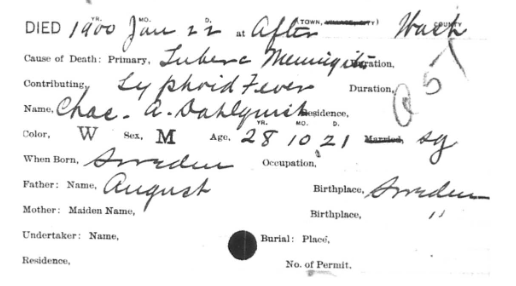 YR. MO. D. (TOWN, COUNTY, CITY) COUNTY
DIED 1900 Jan 22 at Afton Wash
Cause of Death: Primary, Tuberc Meningitis Duration,
Contributing, Typhoid Fever Duration,
Name, Chas. A. Dahlquist Residence,
YR. MO. D.
Color, W Sex, M Age, 28 10 21 Married, sg
When Born, Sweden Occupation,
Father: Name, August Birthplace, Sweden
Mother: Maiden Name, Birthplace, "
Undertaker: Name, Burial: Place,
Residence, No. of Permit,